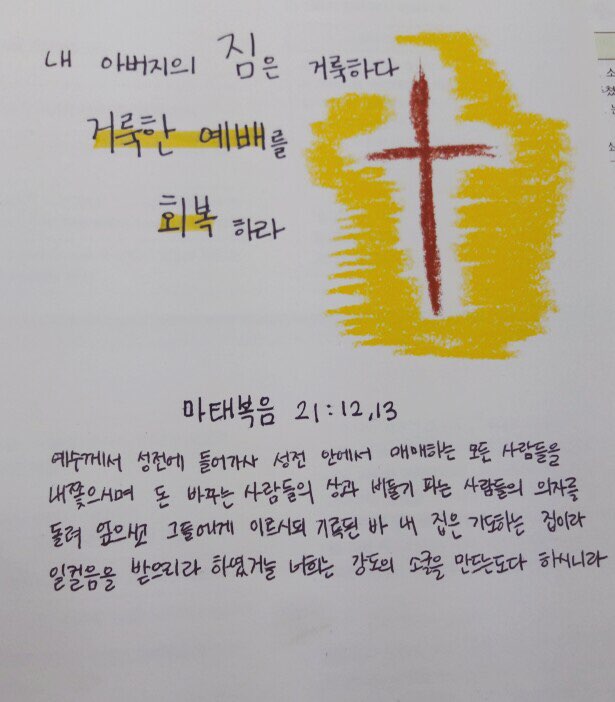 내 아버지의 짐은 거룩하다
거룩한 예배를
회복 하라
마태복음 21:12,13
예수께서 성전에 들어가사 성전 안에서 매매하는 모든 사람들을
내쫓으시며 돈 바꾸는 사람들의 상과 비둘기 파는 사람들의 의자를
둘러 엎으시고 그들에게 이르시되 기록된 바 내 집은 기도하는 집이라
일컬음을 받으리라 하였거늘 너희는 강도의 소굴을 만드는도다 하시니라